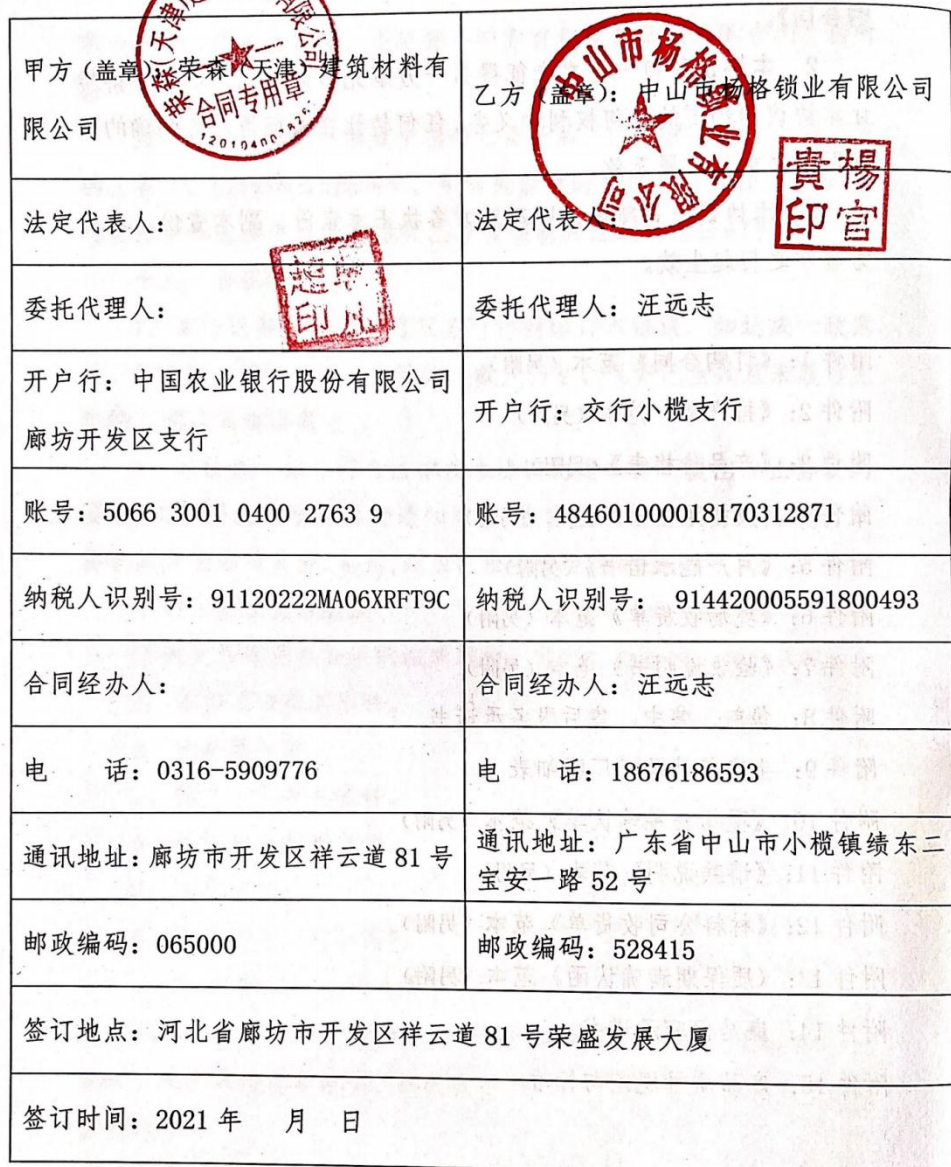 甲方（盖章）：荣森（天津）建筑材料有
限公司
合同专用章
乙方（盖章）：中山市杨格锁业有限公司
中山市杨格锁业有限公司
法定代表人：
法定代表人：
楊官
貴印
委托代理人：
委托代理人：汪远志
开户行：中国农业银行股份有限公司
廊坊开发区支行
开户行：交行小榄支行
账号：5066 3001 0400 2763 9
账号：484601000018170312871
纳税人识别号：91120222MA06XRFT9C
纳税人识别号： 9144200055918004​93
合同经办人：
合同经办人：汪远志
电　　话：0316-5909776
电　　话：18676186593
通讯地址：廊坊市开发区祥云道 81 号
通讯地址：广东省中山市小榄镇绩东二
宝安一路 52 号
邮政编码：065000
邮政编码：528415
签订地点：河北省廊坊市开发区祥云道 81 号荣盛发展大厦
签订时间：2021 年　　月　　日